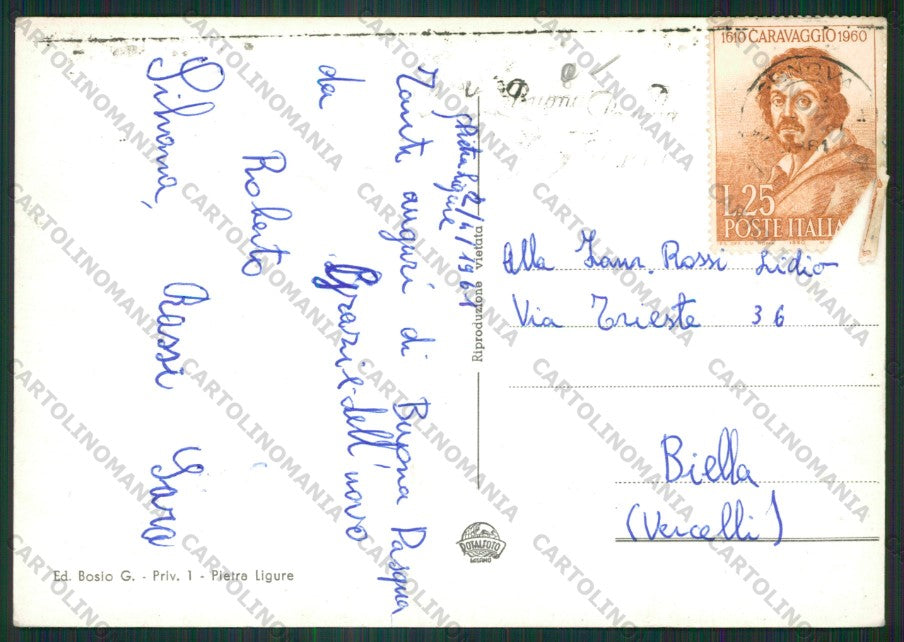 Pietra Ligure
2/4/1961
Tanti auguri di Buona Pasqua
da Grazie dell'uovo
Roberto
Silvana, Rossi Sara
Alla Fam. Rossi Lidio
Via Trieste 36
Biella
(Vercelli)
1610 CARAVAGGIO 1960
L.25
POSTE ITALIANE
Riproduzione vietata
ROTALFOTO
MILANO
Ed. Bosio G. - Priv. 1 - Pietra Ligure
CARTOLINOMANIA